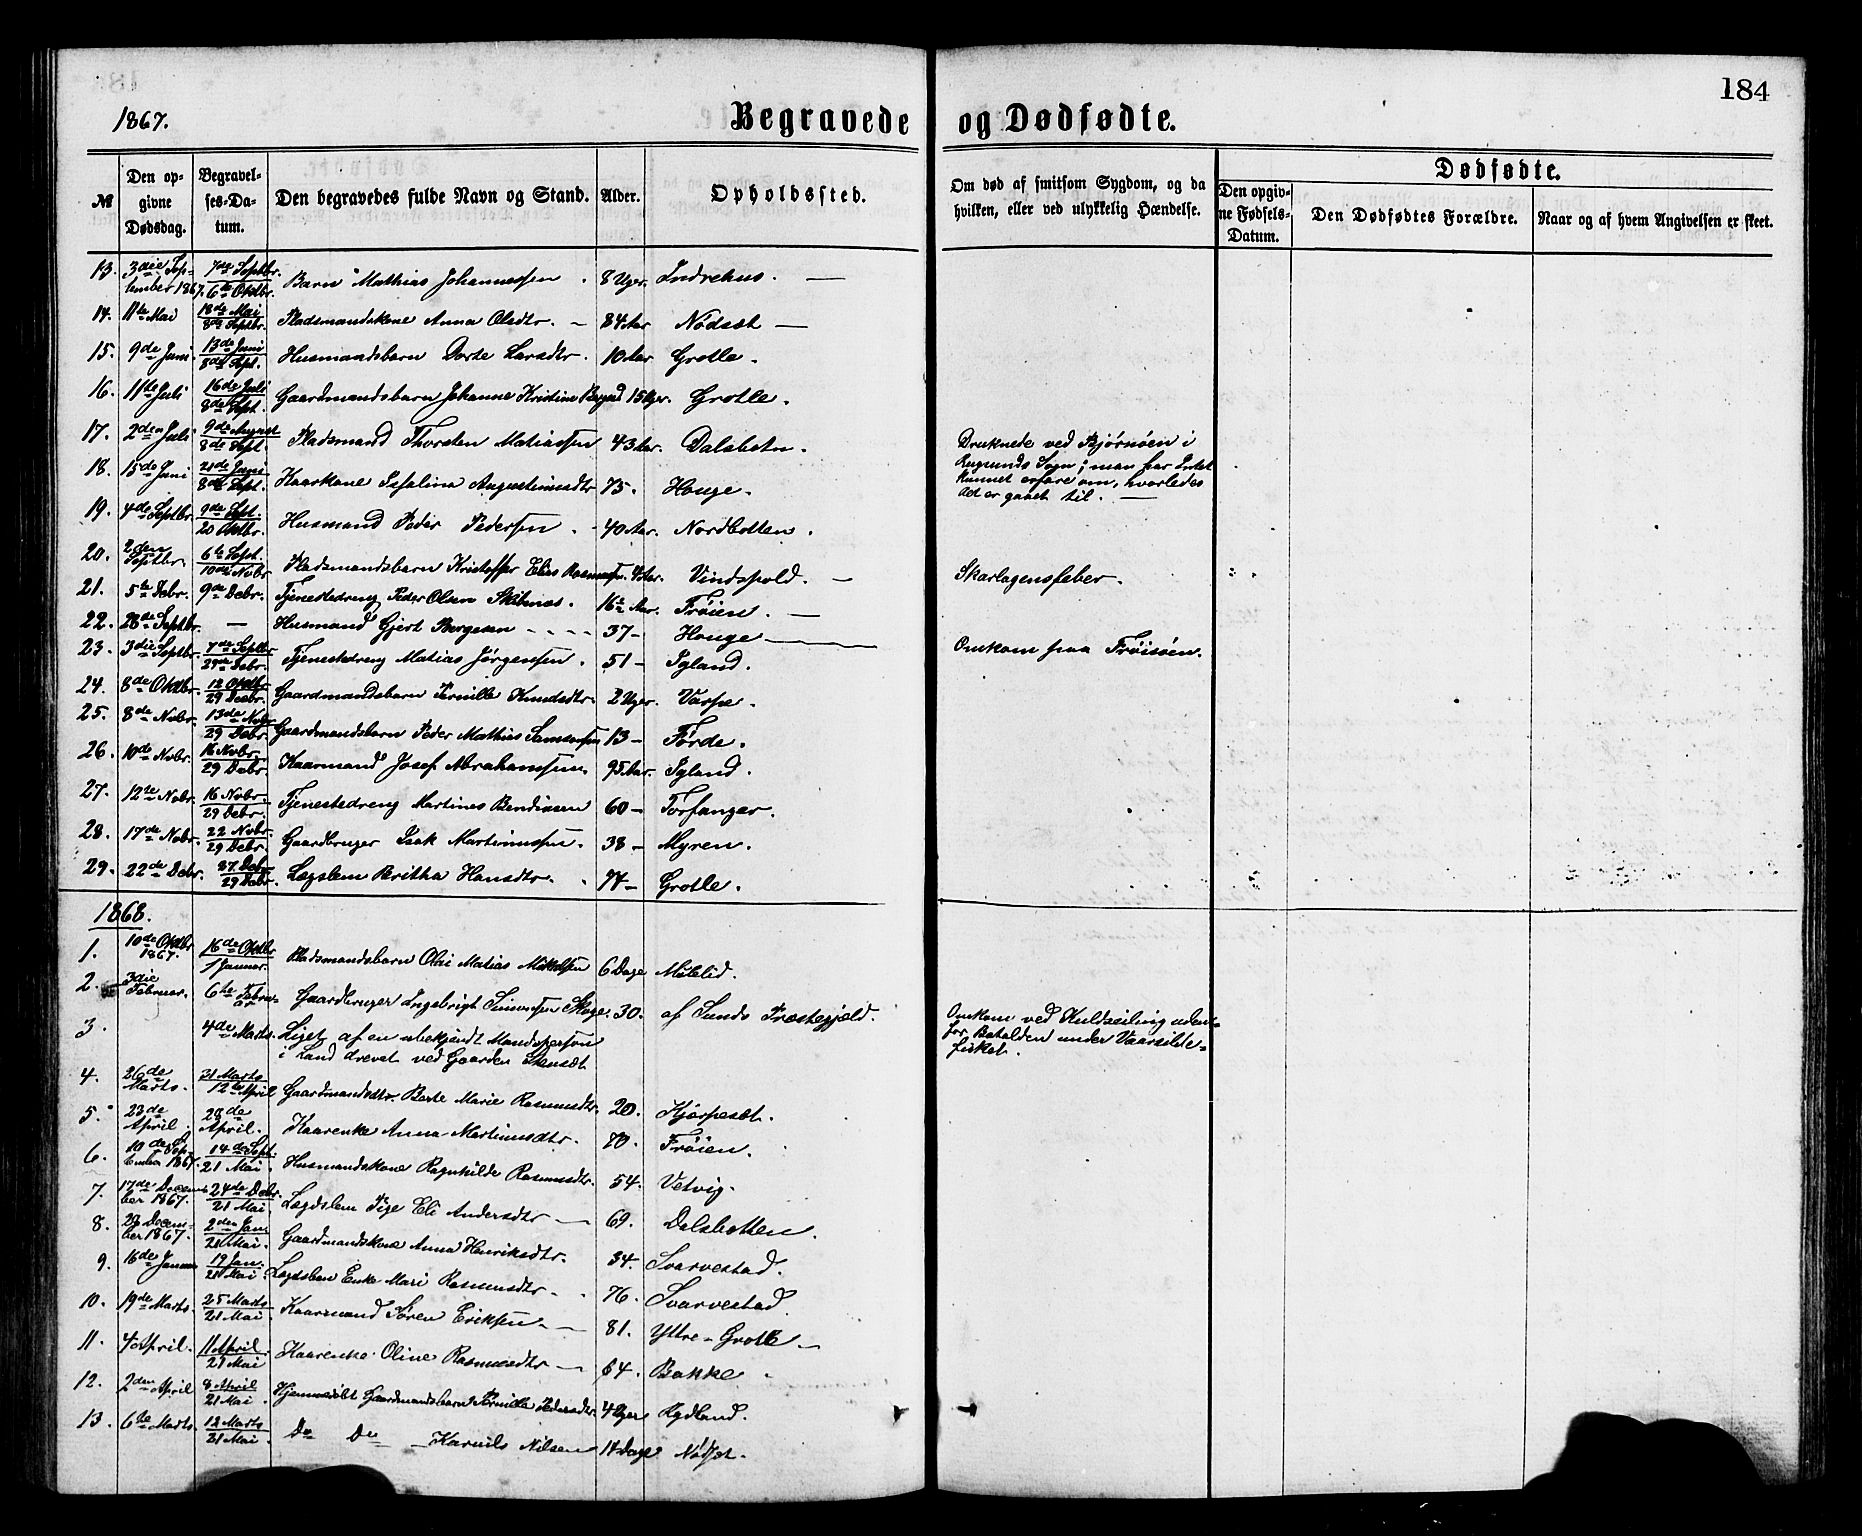 184
1867.
Begravede og Dødfødte.
№
Den opgivne Dødsdag.
Begravelses-Datum.
Den begravedes fulde Navn og Stand.
Alder.
Opholdssted.
Om død af smitsom Sygdom, og da hvilken, eller ved ulykkelig Hændelse.
Dødfødte.
Den opgivne Fødsels-Datum.
Den Dødfødtes Forældre.
Naar og af hvem Angivelsen er skeet.
13. 3die September 1867. 7de Septbr. 6te Oktbr. Barn Mathias Johannessen 8 Uger. Indrehus. —
14. 11te Mai 18de Mai 8de Septbr. Pladsmandskone Anna Olsdtr. — 84 Aar Nödset —
15. 9de Juni 13de Juni 8de Sept. Husmandsbarn Dorte Larsdtr. 10 Aar Grotle.
16. 11te Juli 16de Juli 8de Sept. Gaardmandsbarn Johanne Kristine 15 Uger. Grotle.
17. 2den Juli 9de August 8de Sept. Pladsmand Thorsten Matiassen 43 Aar. Dalsbotn. Druknede ved Bjørnøen i
Rugsunds Sogn; man har Intet
kunnet erfare om, hvorledes
det er gaaet til. —
18. 15de Juni 21de Juni 8de Sept. Kaarkone Augustinusdtr 75. Houge.
19. 4de Septbr. 9de Sept. 20 Oktbr. Husmand Peder Pedersen 40 Aar. Nordbotten.
20. 2den Septbr. 6te Sept. 10de Novbr Pladsmandsbarn Kristoffer Elias Rasmussen. 4 Aar. Vindspold. — Skarlagensfeber.
21. 5te Debr. 9de Debr. Tjenestedreng Peder Olsen Skibenes. 16½ Aar. Frøien. —
22. 28de Septbr. — Husmand Gjert Børgesen - - - - 37 - Houge
23. 3die Septbr. 7de Septbr 29de Debr. Tjenestedreng Matias Jørgensen. 51 - Igland. Omkom paa Frøisøen.
24. 8de Oktbr. 12 Oktbr 29 Decbr. Gaardmandsbarn Pernille Knudsdtr. 2 Uger. Varpe.
25. 8de Novbr. 13de Novbr 29 Debr. Gaardmandsbarn Peder Mathias Samsonsen 13 - Førde.
26. 10de Novbr. 16 Novbr. 29 Debr. Kaarmand Josef Abrahamsen. 95 Aar. Igland.
27. 12te Novbr. 16 Novbr. 29 Debr. Tjenestedreng Martines Bendixsen 60 - Torfanger.
28. 17de Novbr. 22 Novbr. 29 Debr. Gaardbruger Isak Martinussen. 38 - Myren.
29. 22de Debr. 27. Debr. 29 Debr. Lægslem Britha Hansdtr. 74 - Grotle.
1868.
1. 10de Oktbr 1867. 16de Oktbr 1 Januar. Pladsmandsbarn Matias Mikkelsen 6 Dage Midtlid.
2. 3die Februar. 6te Februar Gaardbruger Ingebrigt Simonsen Skoge. 30. af Sunds Præstegjæld. Omkom ved Kuldseiling uden-
for Batalden under Vaarsilde-
fisket.
3. 4de Marts. Liget af en ubekjendt Mandsperson
i Land drevet ved Gaarden
4. 26de Marts. 31 Marts 12te April Gaardmandsdtr. Berte Marie Rasmusdtr. 20. Hjørpeset.
5. 23de April. 28de April. Kaarenke Anna Martinusdtr. 70. Frøien.
6. 10de September 1867. 14de Sept. 21 Mai. Husmandskone Ragnhilde Rasmusdtr. 54. Vetvig.
7. 17de December 1867. 24de Debr. 21 Mai. Lægdslem Pige Eli Andersdtr — 69. Dalsbotten.
8. 28 December 1867. 2den Jan. 21 Mai. Gaardmandskone Anna Henriksdtr. 34. Svarvestad.
9. 16de Januar 19 Jan. 21 Mai. Enke Mari Rasmusdtr. 76. Svarvestad.
10. 19de Marts. 25 Marts 21 Mai. Kaarmand Søren Eriksen. — 81. Yttre-Grotle —
11. 4 April. 11 April. 21 Mai Kaarenke Oline Rasmusdtr — 64. Bakke
12. 2den April 8 April 21 Mai. Hjemmedøbt Gaardmandsbarn Pernille Pedersdtr. 4 Uger Rydland.
13. 6te Marts. 12 Marts 21 Mai. Do Do — Karnils Nilsen 14 Dage Nødset.